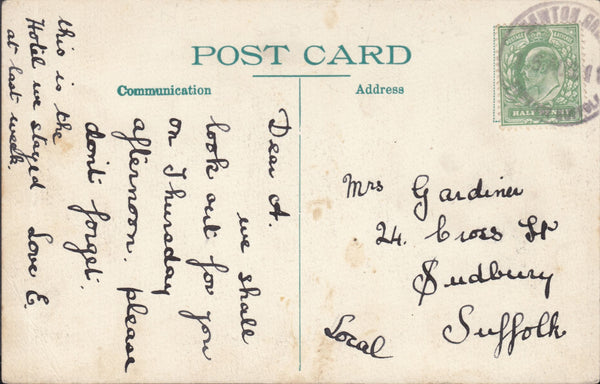 POST CARD
Communication
Address
Dear A.
we shall
look out for you
on Thursday
afternoon. please
don't forget.
Love E.
this is the
Hotel we stayed
at last week.
Mrs Gardiner
24. Cross St
Sudbury
Suffolk
Local
HALFPENNY